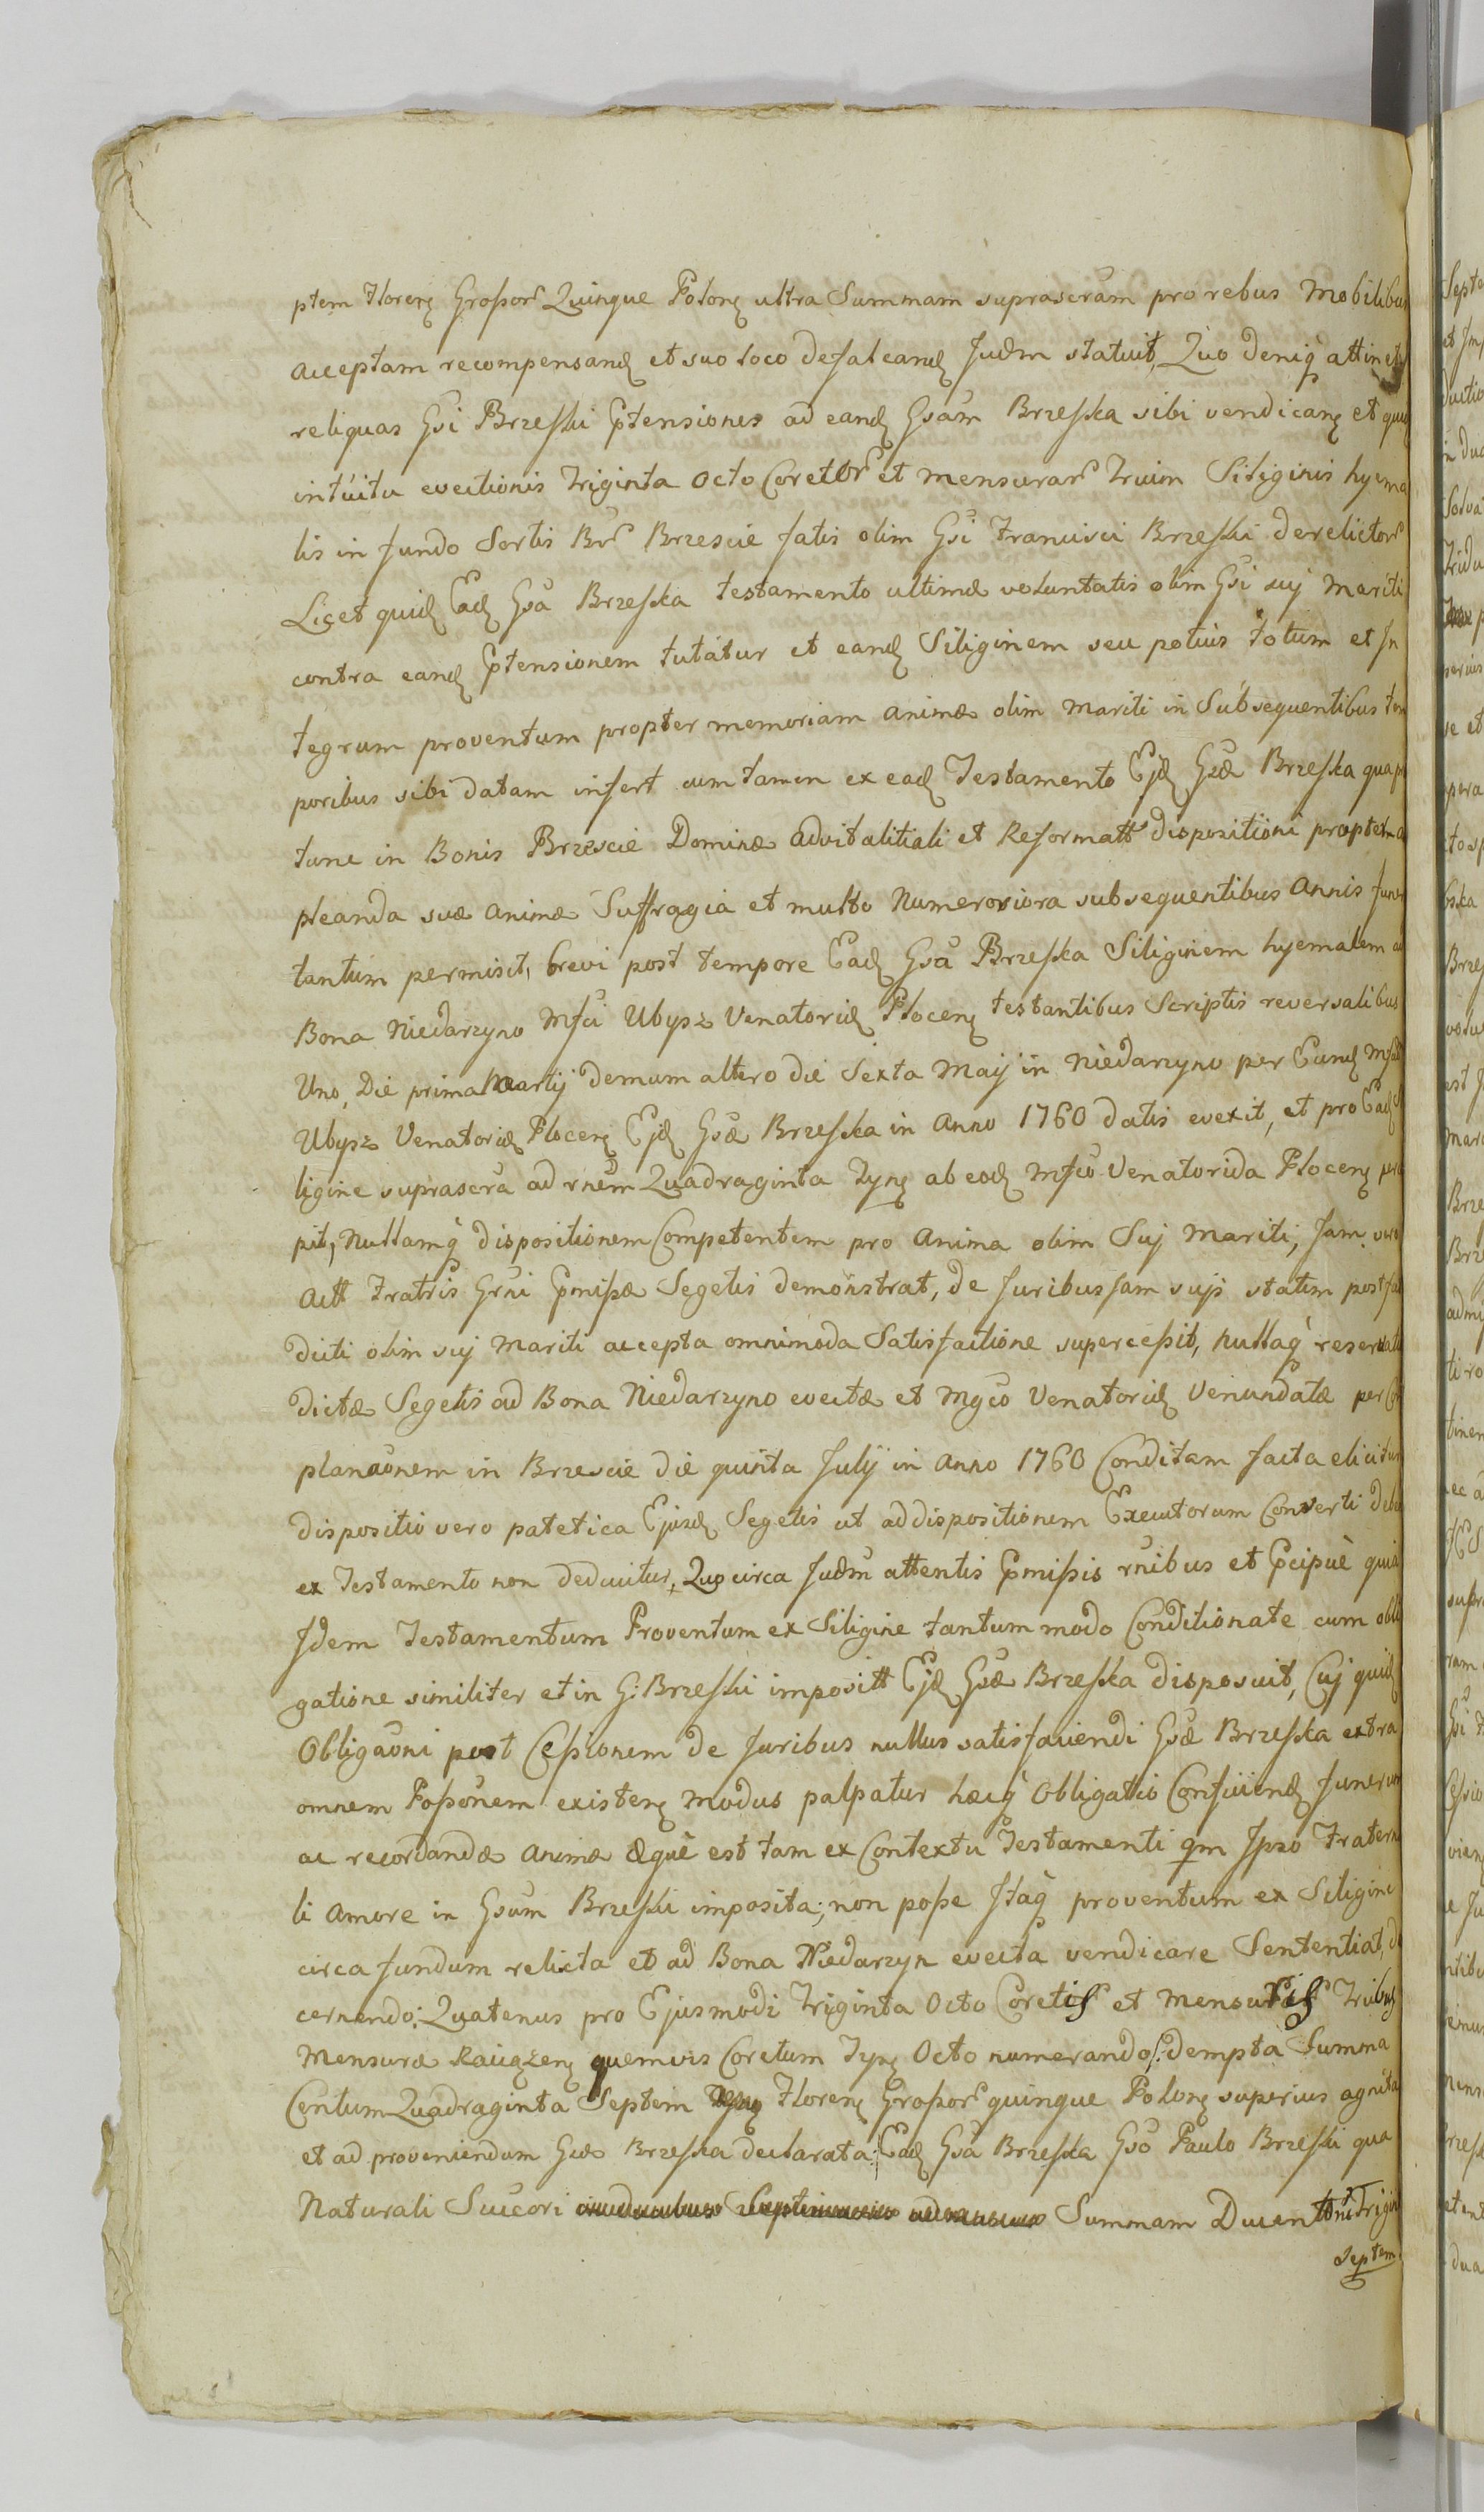 ptem Floren Grossor Quinque Polon ultra Summam suprascram pro rebus Mobilibus
acceptam recompensand et suo loco defalcand Judm statuit, Quo deniq attinet
reliquas Gsi Brzeski Ptensiones ad eand Gsam Brzeska sibi vendican et quid
intuitu evectionis Triginta Octo Coretor et mensurar Trium Siliginis hyema
lis in fundo Sortis Br Brzescie satis olim Gsi Francisci Brzeski derelictor
Licet quid Ead Gsa Brzeska testamento ultimæ voluntatis olim Gsi suj Mariti
contra eand Ptensionem tutatur et eand Siliginem seu potius totum et In
tegrum proventum propter memoriam animæ olim Mariti in Subsequentibus tem
poribus sibi datam infert cum tamen ex eod Testamento Ejd Gsæ Brzeska qua pro
tunc in Bonis Brzescie Dominæ advitalitiali et Reformatt dispositioni propter
pleanda suæ animæ Suffragia et multo Numerosiora subsequentibus Annis funer
tantum permisit, brevi post tempore Ead Gsa Brzeska Siliginem hyemalem ad
Bona Niedarzyno Mfci Ubysz Venatorid Plocen testantibus Scriptis reversalibus
Uno, Die prima Martij demum altero die Sexta Maij in Niedarzyno per Eund Mfcu
Ubysz Venatorid Plocen Ejd Gsæ Brzeska in Anno 1760 datis evexit, et pro Ead Si
ligine suprascra ad rnem Quadraginta Tyn ab eod Mfco Venatorida Plocen perce
pit, Nullamq dispositionem Competentem pro Anima olim Suj Mariti, Jam vero
Actt Fratris Grni Pmissæ Segetis demonstrat, de Juribus Jam sujs statim post fa
dicti olim suj Mariti accepta omnimoda Satisfactione supercessit, nullaq reservata
dictæ Segetis ad Bona Niedarzyno evectæ et Mgco Venatorid Venundatæ per Com
planaonem in Brzescie die quinta Julij in Anno 1760 Conditam facta elicitur
dispositio vero patetica Ejusd Segetis ut ad dispositionem Executorum Converti debe
ex Testamento non deducitur, Quo circa Judm attentis Pmissis rnibus et Pcipue quia
Idem Testamentum Proventum ex Siligine tantum modo Conditionate cum obli
gatione similiter et in G: Brzeski impositt Ejd Gsæ Brzeska disposuit, Cuj quid
Obligaoni post Cessionem de Juribus nullus satisfaciendi Gsæ Brzeska extra
omnem Possonem existen modus palpatur hæcq Obligatio Conficiend funerum
ac recordandæ animæ æque est tam ex Contextu Testamenti qm Ipso Fratern
li Amore in Gsum Brzeski imposita; non posse Itaq proventum ex Siligine
circa fundum relicta et ad Bona Niedarzyn evecta vendicare Sententiat, de
cernendo: Quatenus pro Ejusmodi Triginta Octo Coretis et Mensuris Tribus
Mensuræ Raciążen quemvis Coretum Tyn Octo numerando /: dempta Summa
Centum Quadraginta Septem Floren Grossor quinque Polon superius agnita
et ad proveniendum Gsæ Brzeska declarata :/ Ead Gsa Brzeska Gso Paulo Brzeski qua
Naturali Succori Summam Ducentorum Trigin
Septem